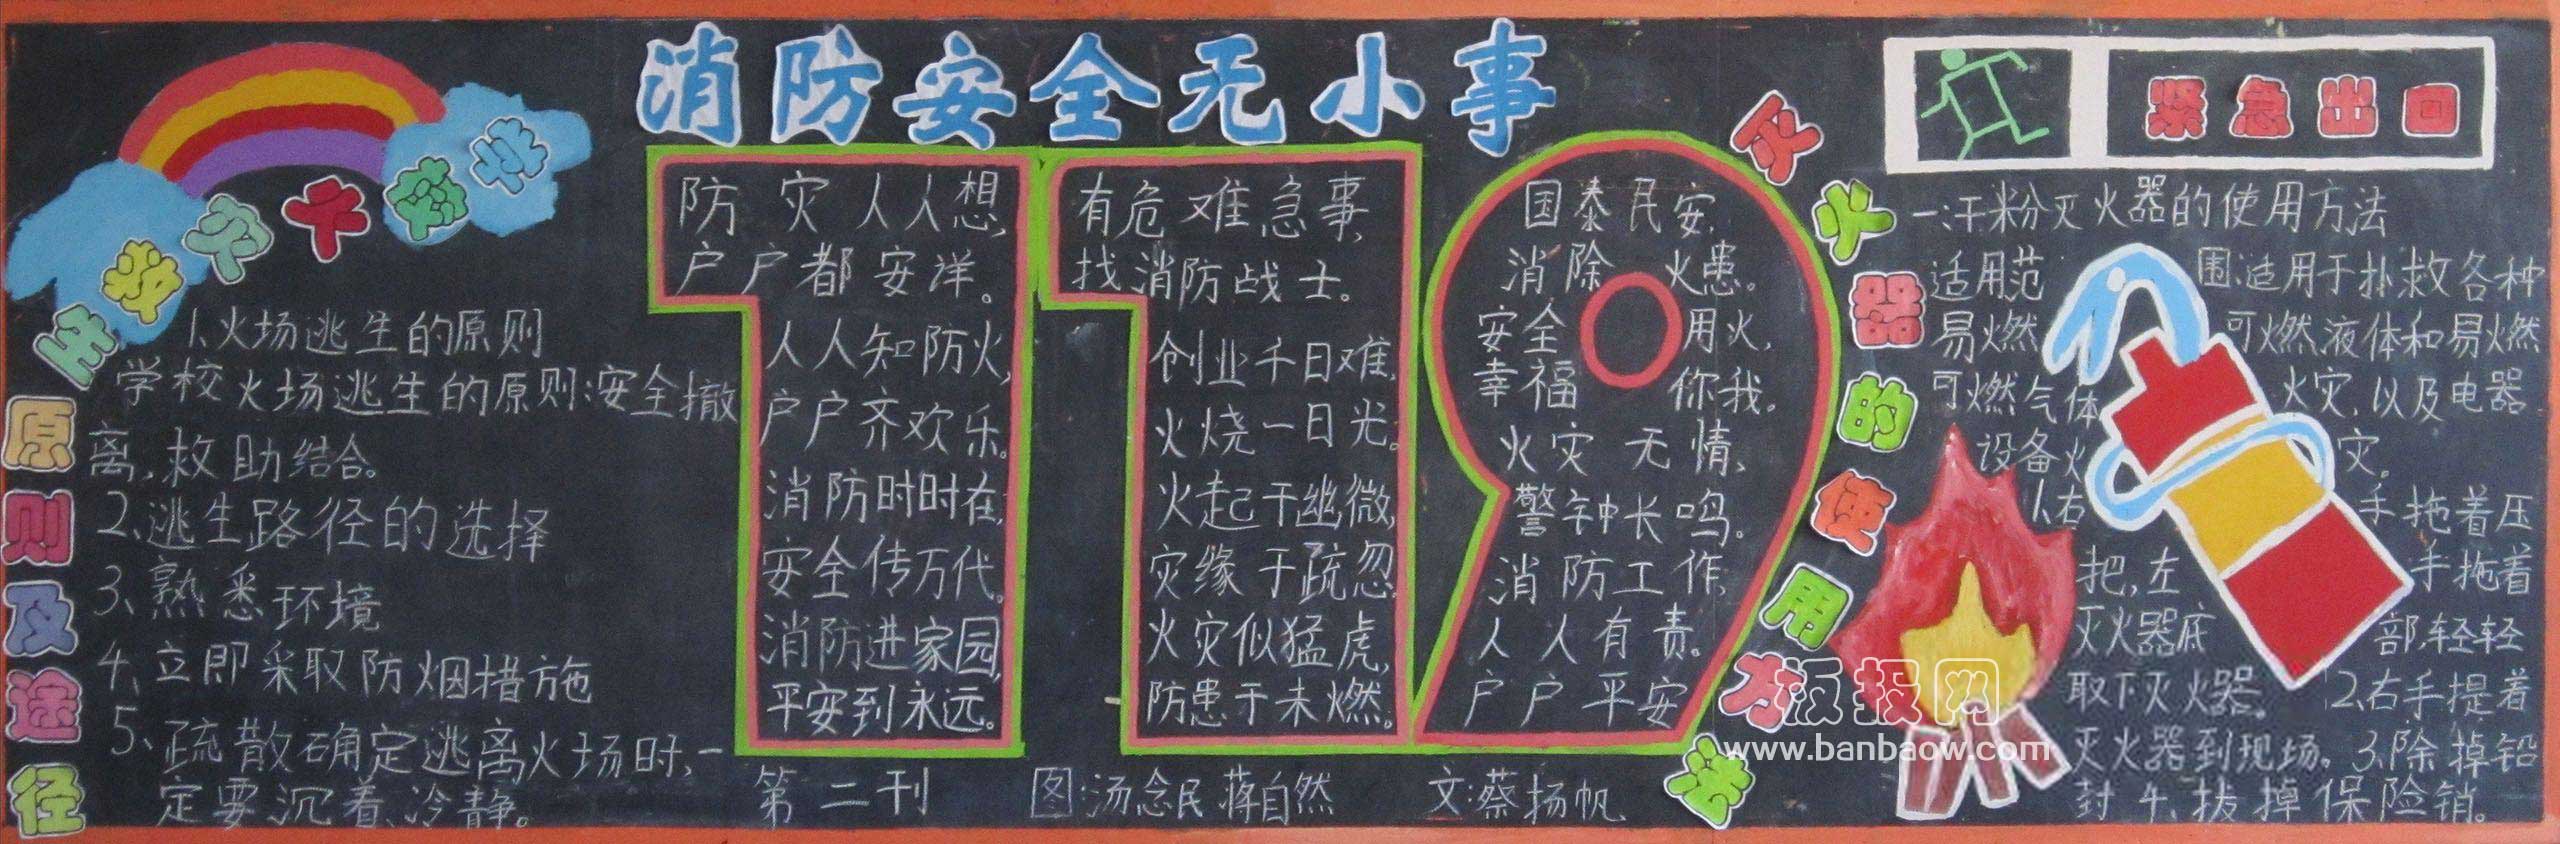 消防安全无小事
生救灾十救火
原则及途径
1、火场逃生的原则
学校火场逃生的原则:安全撤
离,救助结合。
2、逃生路径的选择
3、熟悉环境
4、立即采取防烟措施
5、疏散确定逃离火场时,一
定要沉着、冷静。
防灾人人想,
户户都安洋。
人人知防火,
户户齐欢乐。
消防时时在,
安全传万代。
消防进家园,
平安到永远。
有危难急事,
找消防战士。
创业千日难,
火烧一日光。
火起于幽微,
灾缘于疏忽。
火灾似猛虎,
防患于未燃。
国泰民安,
消除火患。
安全用火,
幸福你我。
火灾无情,
警钟长鸣。
消防工作,
人人有责。
户户平安
第二刊
图:汤念民 蒋自然
文:蔡扬帆
灭火器的使用方法
紧急出口
一:干粉灭火器的使用方法
适用范围:适用于扑救各种
易燃可燃液体和易燃
可燃气体火灾,以及电器
设备火灾。
1、右手拖着压
把,左手拖着
灭火器底部,轻轻
取下灭火器。2、右手提着
灭火器到现场。3、除掉铅
封4、拔掉保险销。
板报网
www.banbaow.com